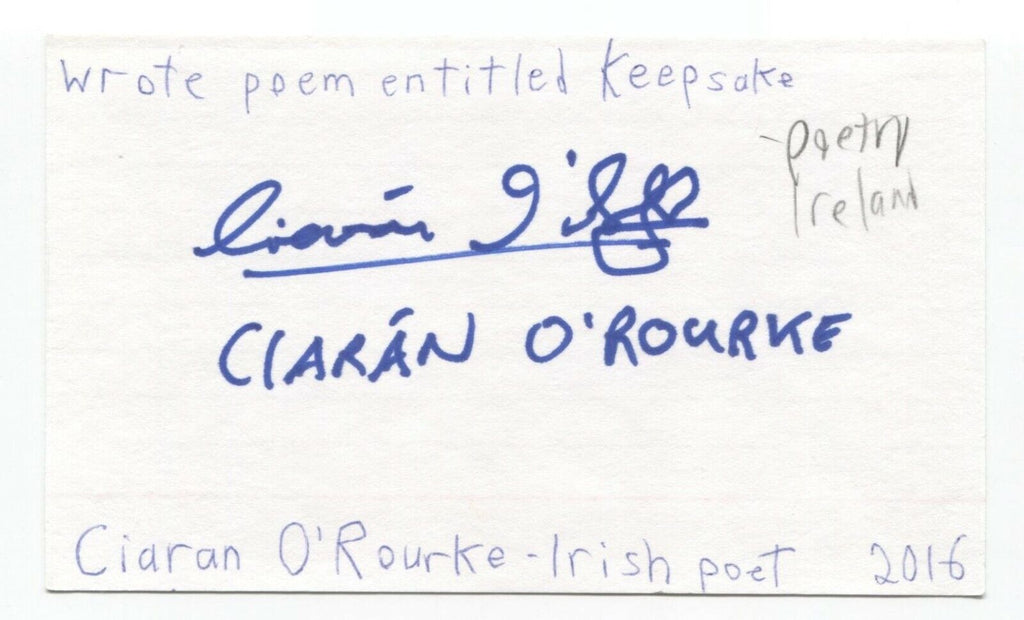 wrote poem entitled Keepsake
-poetry
Ireland
Ciarán O'R
CIARÁN O'ROURKE
Ciaran O'Rourke - Irish poet 2016